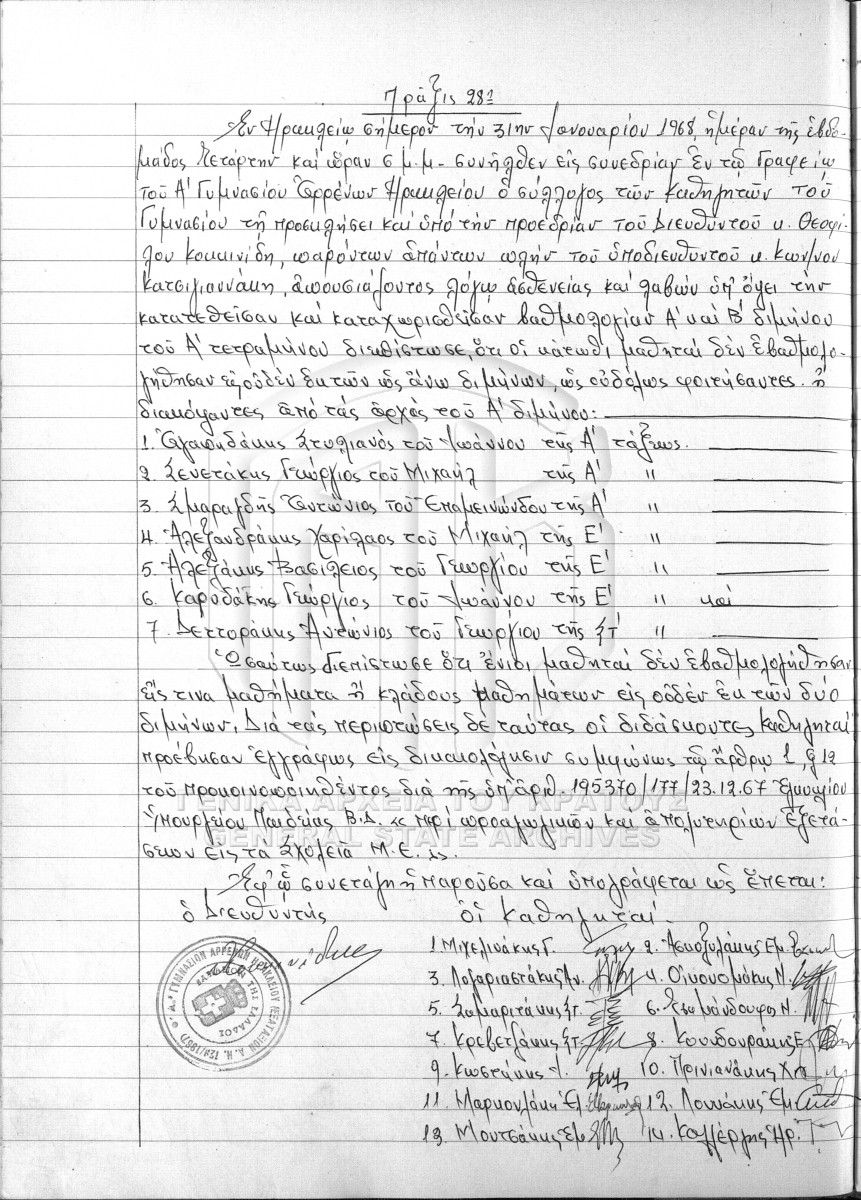 Πρᾶξις 28η
Ἐν Ἡρακλείῳ σήμερον τήν 31ην Ἰανουαρίου 1968, ἡμέραν τῆς ἑβδο-
μάδος Τετάρτην καί ὥραν 5 μ.μ. συνῆλθεν εἰς συνεδρίαν ἐν τῷ Γραφείῳ
τοῦ Α' Γυμνασίου Ἀρρένων Ἡρακλείου ὁ σύλλογος τῶν καθηγητῶν τοῦ
Γυμνασίου τῇ προσκλήσει καί ὑπό τήν προεδρίαν τοῦ Διευθυντοῦ κ. Θεοφί-
λου Κοκκινίδη, παρόντων ἁπάντων πλήν τοῦ ὑποδιευθυντοῦ κ. Κων/νου
Κατσιγιαννάκη, ἀπουσιάζοντος λόγῳ ἀσθενείας καί λαβών ὑπ' ὄψει τήν
κατατεθεῖσαν καί καταχωρισθεῖσαν βαθμολογίαν Α' καί Β' διμήνου
τοῦ Α' τετραμήνου διεπίστωσε, ὅτι οἱ κάτωθι μαθηταί δέν ἐβαθμολο-
γήθησαν εἰς οὐδέν ἐκ τῶν ὡς ἄνω διμήνων, ὡς οὐδόλως φοιτήσαντες ἤ
διακόψαντες ἀπό τάς ἀρχάς τοῦ Α' διμήνου:
1. Ἀγαπηδάκης Στυλιανός τοῦ Ἰωάννου τῆς Α' τάξεως.
2. Σενετάκης Γεώργιος τοῦ Μιχαήλ τῆς Α' "
3. Σμαραγδῆς Ἀντώνιος τοῦ Ἐπαμεινώνδου τῆς Α' "
4. Ἀλεξανδράκης Χαρίλαος τοῦ Μιχαήλ τῆς Ε' "
5. Ἀλεξάκης Βασίλειος τοῦ Γεωργίου τῆς Ε' "
6. Καρυδάκης Γεώργιος τοῦ Ἰωάννου τῆς Ε' " καί
7. Δεττοράκης Ἀντώνιος τοῦ Γεωργίου τῆς ΣΤ' "
Ὡσαύτως διεπίστωσε ὅτι ἔνιοι μαθηταί δέν ἐβαθμολογήθησαν
εἴς τινα μαθήματα ἤ κλάδους μαθημάτων εἰς οὐδέν ἐκ τῶν δύο
διμήνων. Διά τάς περιπτώσεις δέ ταύτας οἱ διδάσκοντες καθηγηταί
προέβησαν ἐγγράφως εἰς δικαιολόγησιν συμφώνως τῷ ἄρθρῳ 1, § 12
τοῦ προκοινοποιηθέντος διά τῆς ὑπ' ἀριθ. 195370/177/23.12.67 ἐγκυκλίου
Ὑπουργείου Παιδείας Β.Δ. "περί προαγωγικῶν καί ἀπολυτηρίων ἐξετά-
σεων εἰς τά Σχολεῖα Μ.Ε.".
Ἐφ' ᾧ συνετάγη ἡ παροῦσα καί ὑπογράφεται ὡς ἕπεται:
ὁ Διευθυντής Οἱ Καθηγηταί
1. Μιχελινάκης Γ. 2. Ἀσποξυλάκης Ἐμ.
3. Λογαριαστάκης Ἀν. 4. Οἰκονομάκης Ν.
5. Σαμαριτάκης Στ. 6. Τσαμάνδουρας Ν.
7. Κρεβετζάκης Στ. 8. Κουνδουράκης Ε.
9. Κωστάκης Ἰ. 10. Πρινιανάκης Χ.
11. Μαρκουλάκη Ἑλ. 12. Λουκάκης Ἐμ.
13. Μουτσάκης Ἐμ. 14. Καλλέργης Ἡρ.
Α' ΓΥΜΝΑΣΙΟΝ ΑΡΡΕΝΩΝ ΗΡΑΚΛΕΙΟΥ (ΕΞΑΤΑΞΙΟΝ Α.Ν. 129/1967)
ΒΑΣΙΛΕΙΟΝ ΤΗΣ ΕΛΛΑΔΟΣ
ΓΕΝΙΚΑ ΑΡΧΕΙΑ ΤΟΥ ΚΡΑΤΟΥΣ
GENERAL STATE ARCHIVES